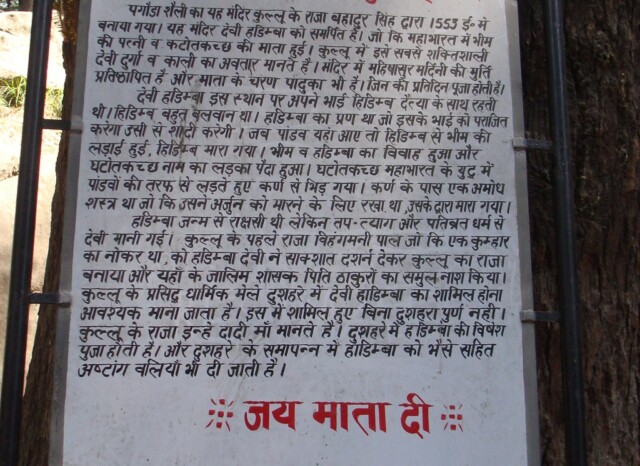 पगौडा शैली का यह मंदिर कुल्लू के राजा बहादुर सिंह द्वारा 1553 ई॰ में
बनाया गया। यह मंदिर देवी हडिम्बा को समर्पित है। जो कि महाभारत में भीम
की पत्नी व कटोतकच्छ की माता हुई। कुल्लू में इसे सबसे शक्तिशाली
देवी दुर्गा व काली का अवतार मानते है। मंदिर में महिषासुर मर्दिनी की मुर्ति
प्रतिष्ठापित है और माता के चरण पादुका भी है। जिन की प्रतिदिन पूजा होती है।
देवी हडिम्बा इस स्थान पर अपने भाई हिडिम्ब दैत्या के साथ रहती
थी। हिडिम्ब बहुत बलवान था। हडिम्बा का प्रण था जो इसके भाई को पराजित
करेगा उसी से शादी करेगी। जब पांडव यहां आए तो हिडिम्ब से भीम की
लड़ाई हुई, हिडिम्ब मारा गया। भीम व हडिम्बा का विवाह हुआ और
घटोतकच्छ नाम का लड़का पैदा हुआ। घटोतकच्छ महाभारत के युद्ध में
पांडवों की तरफ से लड़ते हुए कर्ण से भिड़ गया। कर्ण के पास एक अमोध
शस्त्र था जो कि उसने अर्जुन को मारने के लिए रखा था, उसके द्वारा मारा गया।
हडिम्बा जन्म से राक्षसी थी लेकिन तप-त्याग और पतिव्रत धर्म से
देवी मानी गई। कुल्लू के पहले राजा विहंगमनी पाल जो कि एक कुम्हार
का नौकर था, को हडिम्बा देवी ने साक्शात दर्शन देकर कुल्लू का राजा
बनाया और यहाँ के जालिम शासक पिति ठाकुरों का समुल नाश किया।
कुल्लू के प्रसिद्ध धार्मिक मेले दुशहरे में देवी हाडिम्बा का शामिल होना
आवश्यक माना जाता है। इस में शामिल हुए बिना दुशहरा पुर्ण नही।
कुल्लू के राजा इन्हे दादी माँ मानते है। दुशहरे में हडिम्बा की विषेश
पुजा होती है। और दुशहरे के समापन्न में हाडिम्बा को भैसे सहित
अष्टांग वलियाँ भी दी जाती है।
जय माता दी